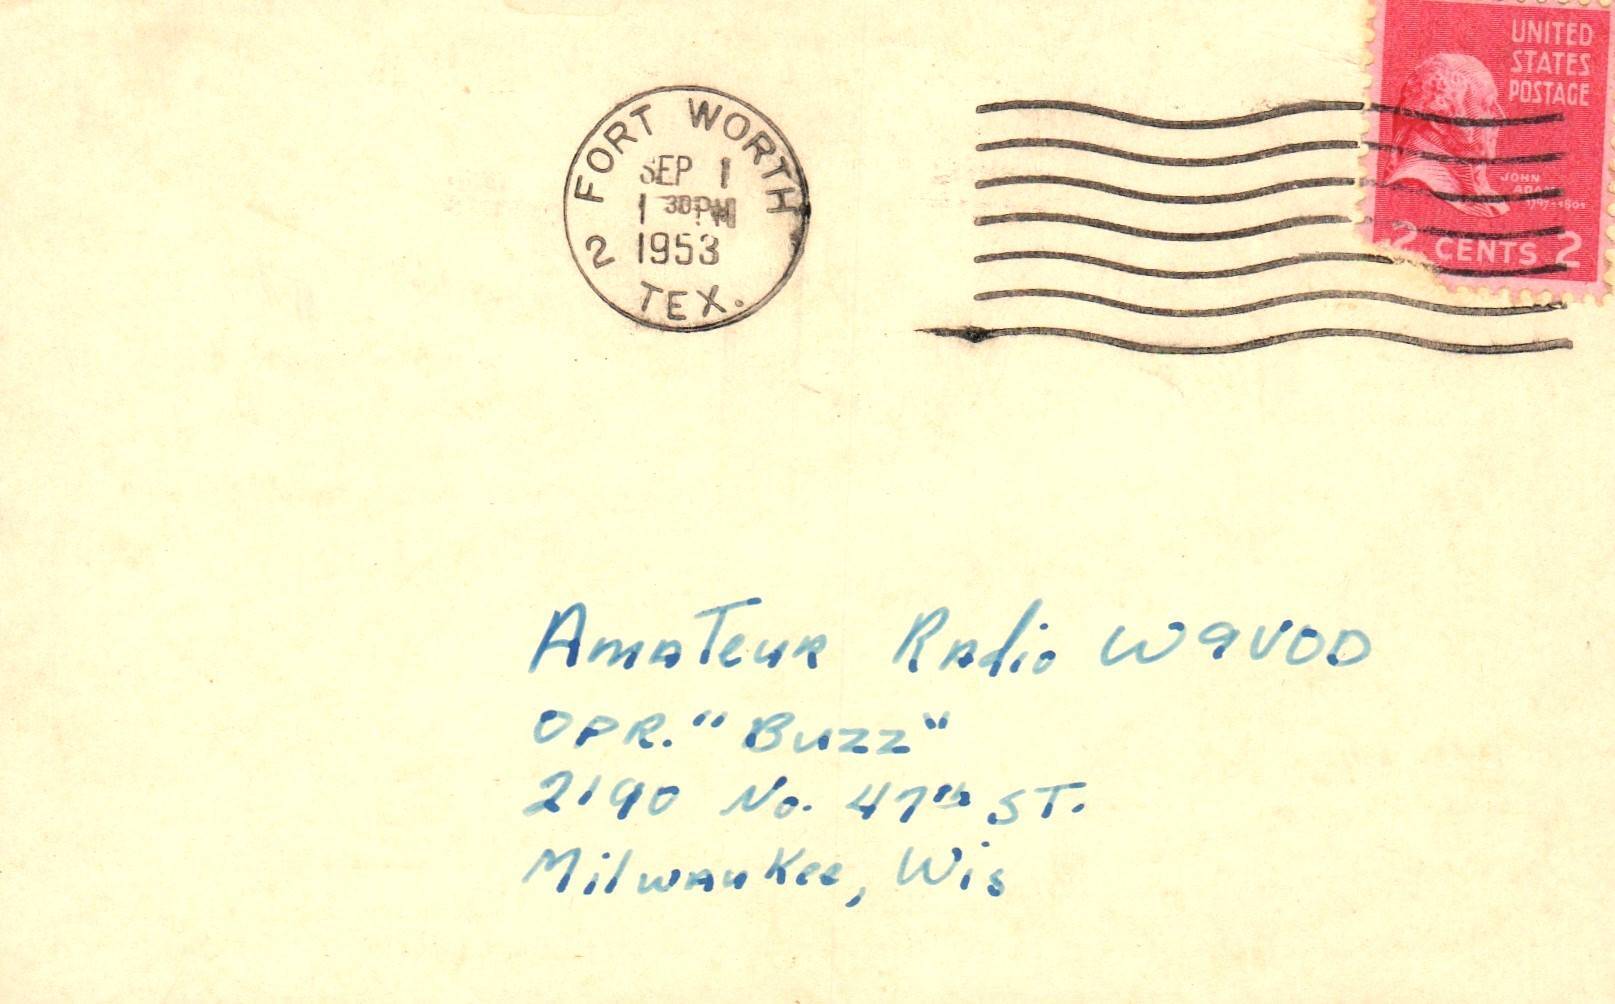 UNITED
STATES
POSTAGE
JOHN
ADAMS
1797-1801
2 CENTS 2
FORT WORTH
SEP 1
1 30 PM
1953
2
TEX.
Amateur Radio W9VOD
OPR. "Buzz"
2190 No. 47th ST.
Milwaukee, Wis